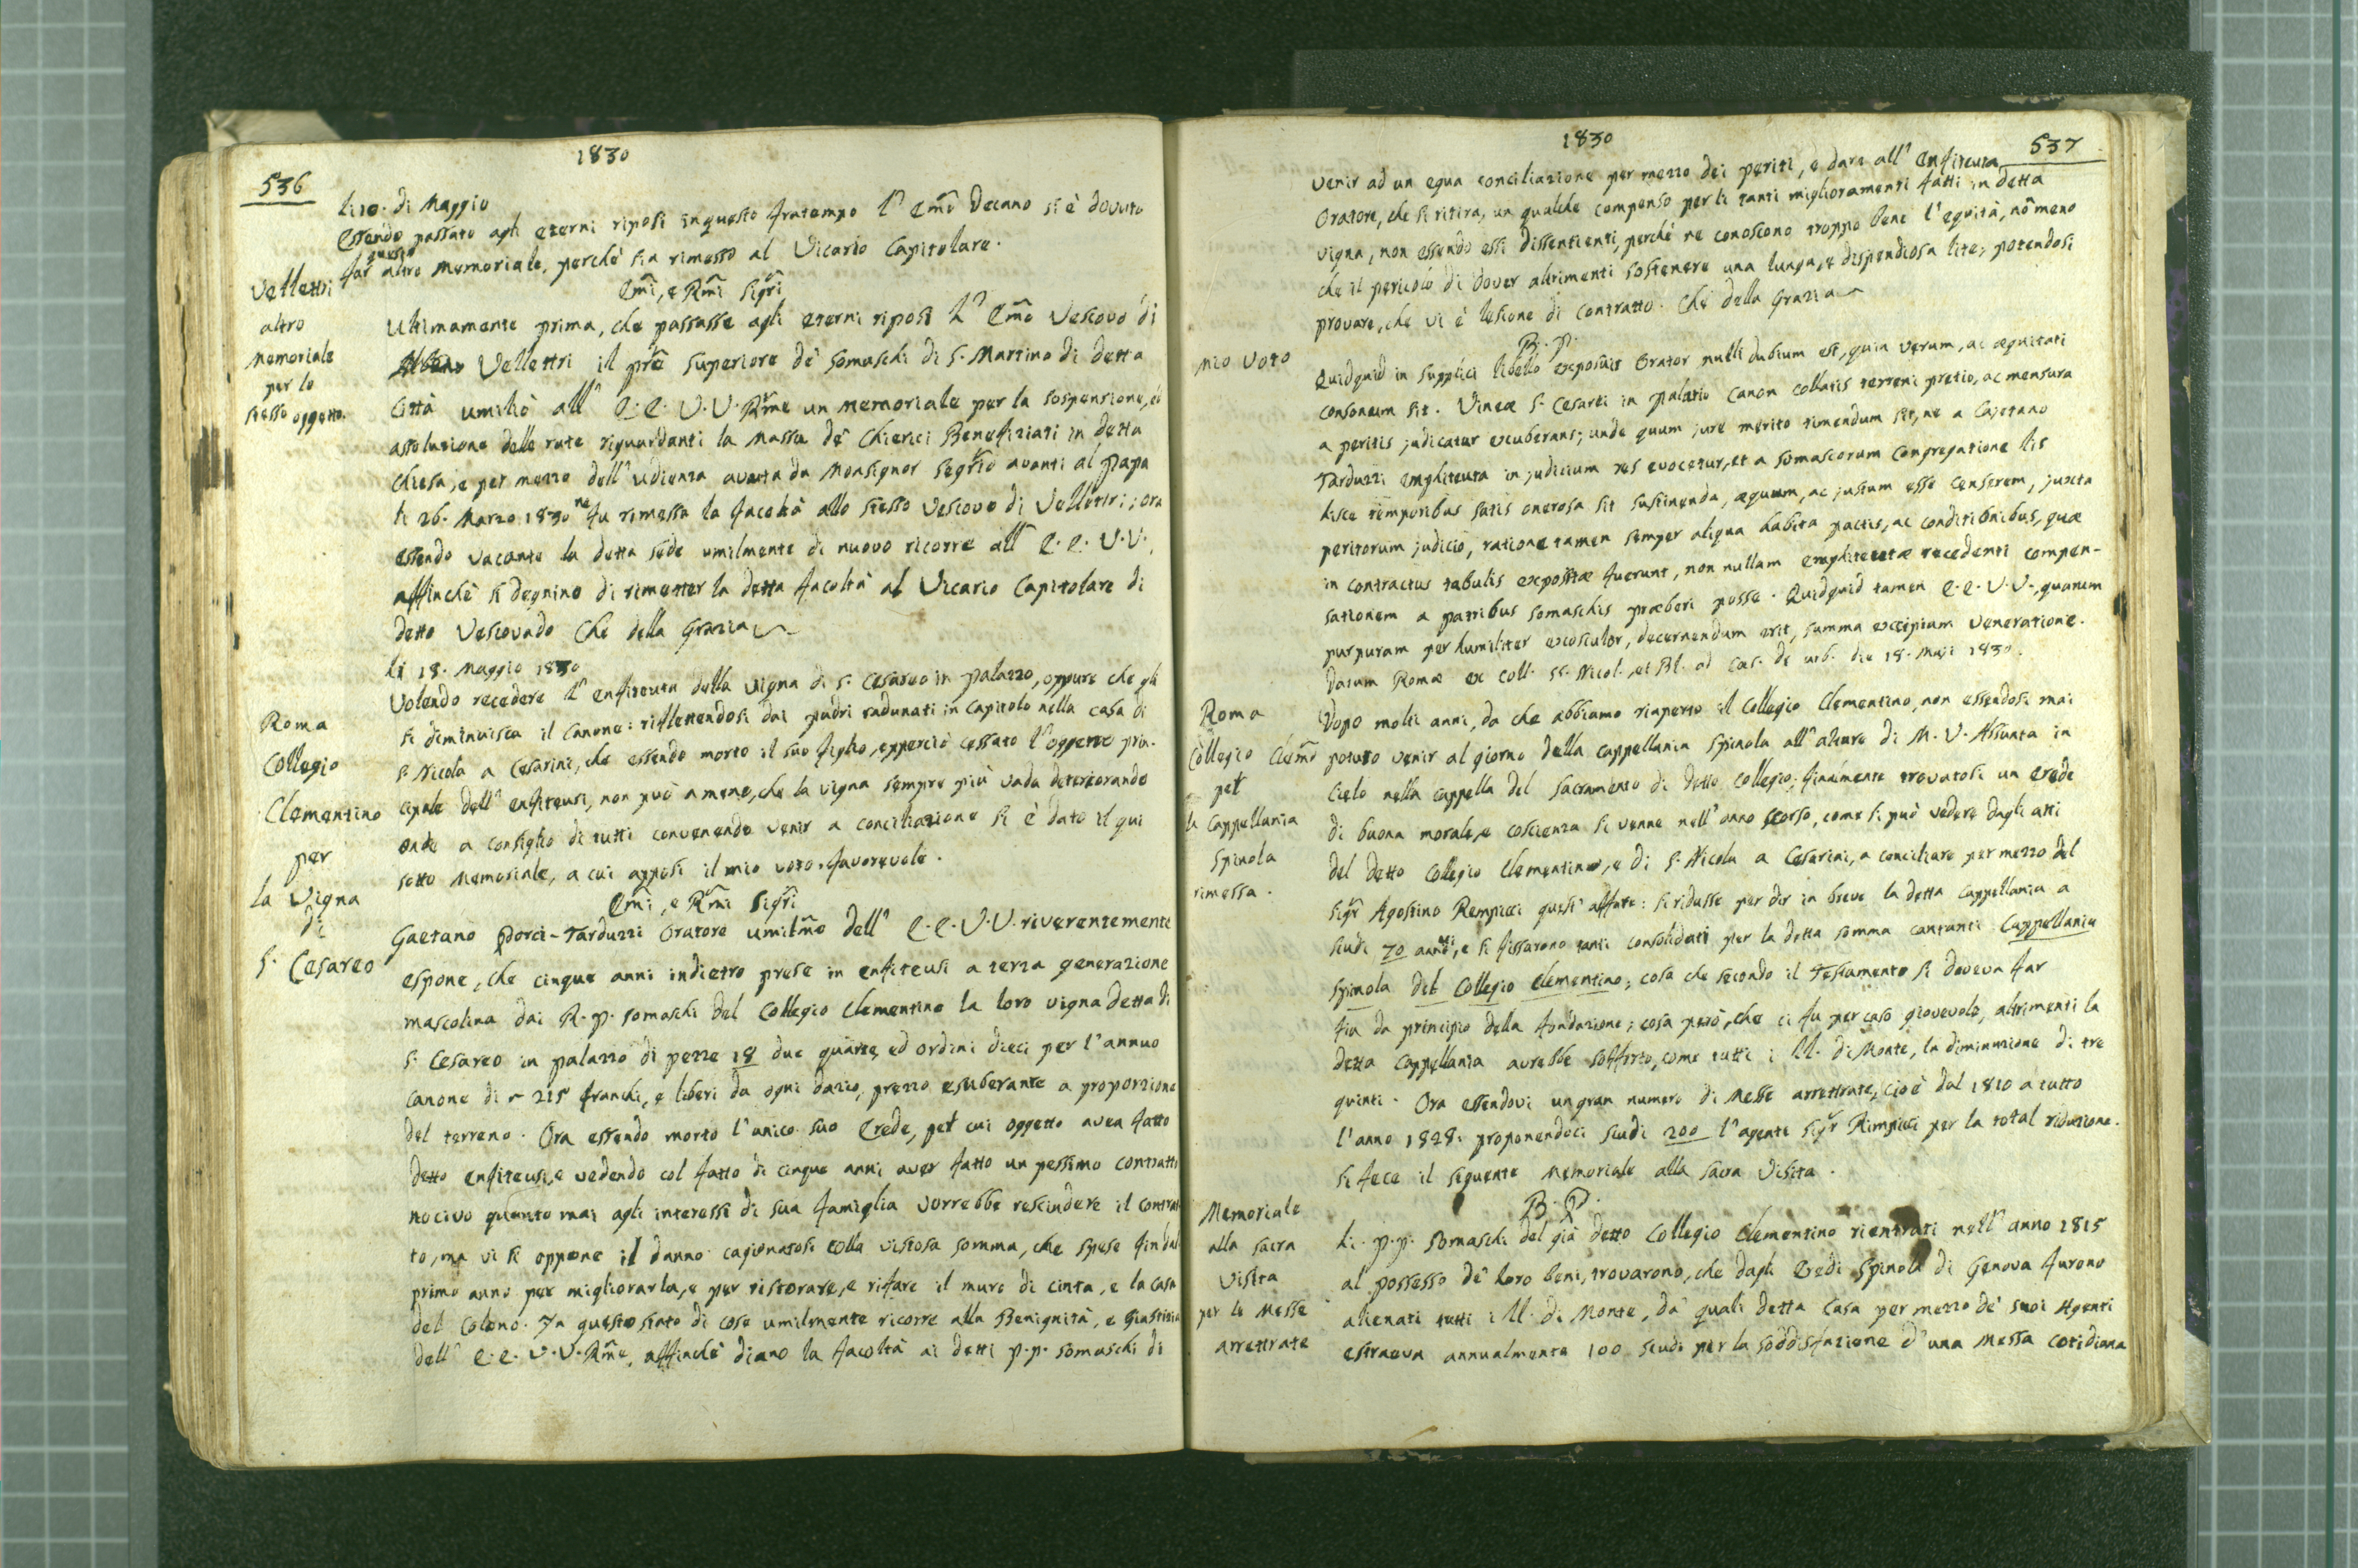 536
1830
li 10. di Maggio
Essendo passato agli eterni riposi in questo fratempo l' Emo Decano si è dovuto
far questo altro Memoriale, perchè sia rimesso al Vicario Capitolare.
Vellettri
altro
Memoriale
per lo
stesso oggetto.
Emi, e Rmi Sigri
Ultimamente prima, che passasse agli eterni riposi L' Emo Vescovo di
Vellettri il pre Superiore de' Somaschi di S. Martino di detta
Città umiliò all' E. E. V. V. Rme un memoriale per la sospensione, ed
assoluzione delle rate riguardanti la Massa de' Chierici Benefiziati in detta
Chiesa, e per mezzo dell' udienza avuta da Monsignor Segrio avanti al Papa
li 26. Marzo 1830 ne fu rimessa la facoltà allo stesso Vescovo di Vellettri; ora
essendo vacante la detta sede umilmente di nuovo ricorre all' E. E. V. V.,
affinchè si degnino di rimetter la detta facoltà al Vicario Capitolare di
detto Vescovado Che della Grazia
li 18. Maggio 1830
Roma
Collegio
Clementino
per
la Vigna
di
S. Cesareo
Volendo recedere l' enfiteuta della vigna di S. Cesareo in Palazzo, oppure che gli
si diminuisca il canone: riflettendosi dai padri radunati in Capitolo nella casa di
S. Nicola a Cesarini, che essendo morto il suo figlio, epperciò cessato l' oggetto prin-
cipale dell' enfiteusi, non può a meno, che la vigna sempre più vada deteriorando
onde a consiglio di tutti convenendo venir a conciliazione si è dato il qui
sotto Memoriale, a cui apposi il mio voto favorevole.
Emi, e Rmi Sigri
Gaetano Porci-Tarduzzi Oratore umilmo dell' E. E. V. V. riverentemente
espone, che cinque anni indietro prese in enfiteusi a terza generazione
mascolina dai R. P. Somaschi del Collegio Clementino la loro vigna detta di
S. Cesareo in palazzo di pezze 18 due quarte, ed ordini dieci per l'annuo
canone di 215 franchi, e liberi da ogni dazio, prezzo esuberante a proporzione
del terreno. Ora essendo morto l'unico suo Erede, per cui oggetto avea fatto
detto enfiteusi, e vedendo col fatto di cinque anni aver fatto un pessimo contratto
nocivo quanto mai agli interessi di sua famiglia vorrebbe rescindere il contrat-
to, ma vi si oppone il danno cagionatosi colla vistosa somma, che spese fin dal
primo anno per migliorarla, e per ristorare, e rifare il muro di cinta, e la casa
del Colono. In questo stato di cose umilmente ricorre alla Benignità, e Giustizia
dell' E. E. V. V. Rme, affinchè diano la facoltà ai detti P. P. Somaschi di
1830
537
venir ad un equa conciliazione per mezzo dei periti, e dare all' Enfiteuta
Oratore, che si ritira, un qualche compenso per li tanti miglioramenti fatti in detta
vigna, non essendo essi dissentienti, perchè ne conoscono troppo bene l'equità, nōmeno
che il pericolo di dover altrimenti sostenere una lunga, e dispendiosa lite, potendosi
provare, che vi è lesione di contratto. Che della Grazia
Mio Voto
B. P.
Quidquid in supplici libello exposuit Orator nulli dubium est, quin verum, ac æquitati
consonum sit. Vineæ S. Cesarei in Palatio Canon collatis terreni pretio, ac mensura
a peritis judicatur exuberans; unde quum jure merito timendum sit, ne a Cajetano
Tarduzzi emphiteuta in judicium res evocetur, et a Somascorum Congregatione lis
hisce temporibus satis onerosa sit sustinenda, æquum, ac justum esse censerem, juxta
peritorum judicio, ratione tamen semper aliqua habita pactis, ac conditionibus, quæ
in contractus tabulis expositæ fuerunt, non nullam emphiteutæ recedenti compen-
sationem a patribus Somaschis præberi posse. Quidquid tamen E. E. V. V., quarum
purpuram perhumiliter exosculor, decernendum erit, summa excipiam veneratione.
Datum Romæ ex Coll. SS. Nicol., et Bl. ad Cæs. de urb. die 18. Maji 1830.
Roma
Collegio Clemno
per
la Cappellania
Spinola
rimessa.
Dopo molti anni, da che abbiamo riaperto il Collegio Clementino, non essendosi mai
potuto venir al giorno della cappellania Spinola all' altare di M. V. Assunta in
Cielo nella cappella del Sacramento di detto Collegio; finalmente trovatosi un Erede
di buona morale, e coscienza si venne nell' anno scorso, come si può vedere dagli atti
del detto Collegio Clementino, e di S. Nicola a Cesarini, a conciliare per mezzo del
Sigr Agostino Rempicci quest' affare: si ridusse per dir in breve la detta Cappellania a
scudi 70 annui, e si fissarono tanti consolidati per la detta somma cantanti Cappellania
Spinola del Collegio Clementino; cosa che secondo il Testamento si doveva far
fin da principio della fondazione; cosa però, che ci fu per caso giovevole, altrimenti la
detta Cappellania avrebbe sofferto, come tutti i LL. di Monte, la diminuzione di tre
quinti. Ora essendovi un gran numero di Messe arrettrate, cioè dal 1810 a tutto
l'anno 1828: proponendoci scudi 200 l'agente Sigr Rimpicci per la total riduzione.
si fece il seguente Memoriale alla sacra Visita.
Memoriale
alla sacra
Visita
per le Messe
arrettrate
B. P.
Li P. P. Somaschi del già detto Collegio Clementino rientrati nell' anno 1815
al possesso de' loro beni, trovarono, che dagli Eredi Spinola di Genova furono
alienati tutti i LL. di Monte, da' quali detta Casa per mezzo de' suoi Agenti
estraeva annualmente 100 scudi per la soddisfazione d'una Messa cotidiana